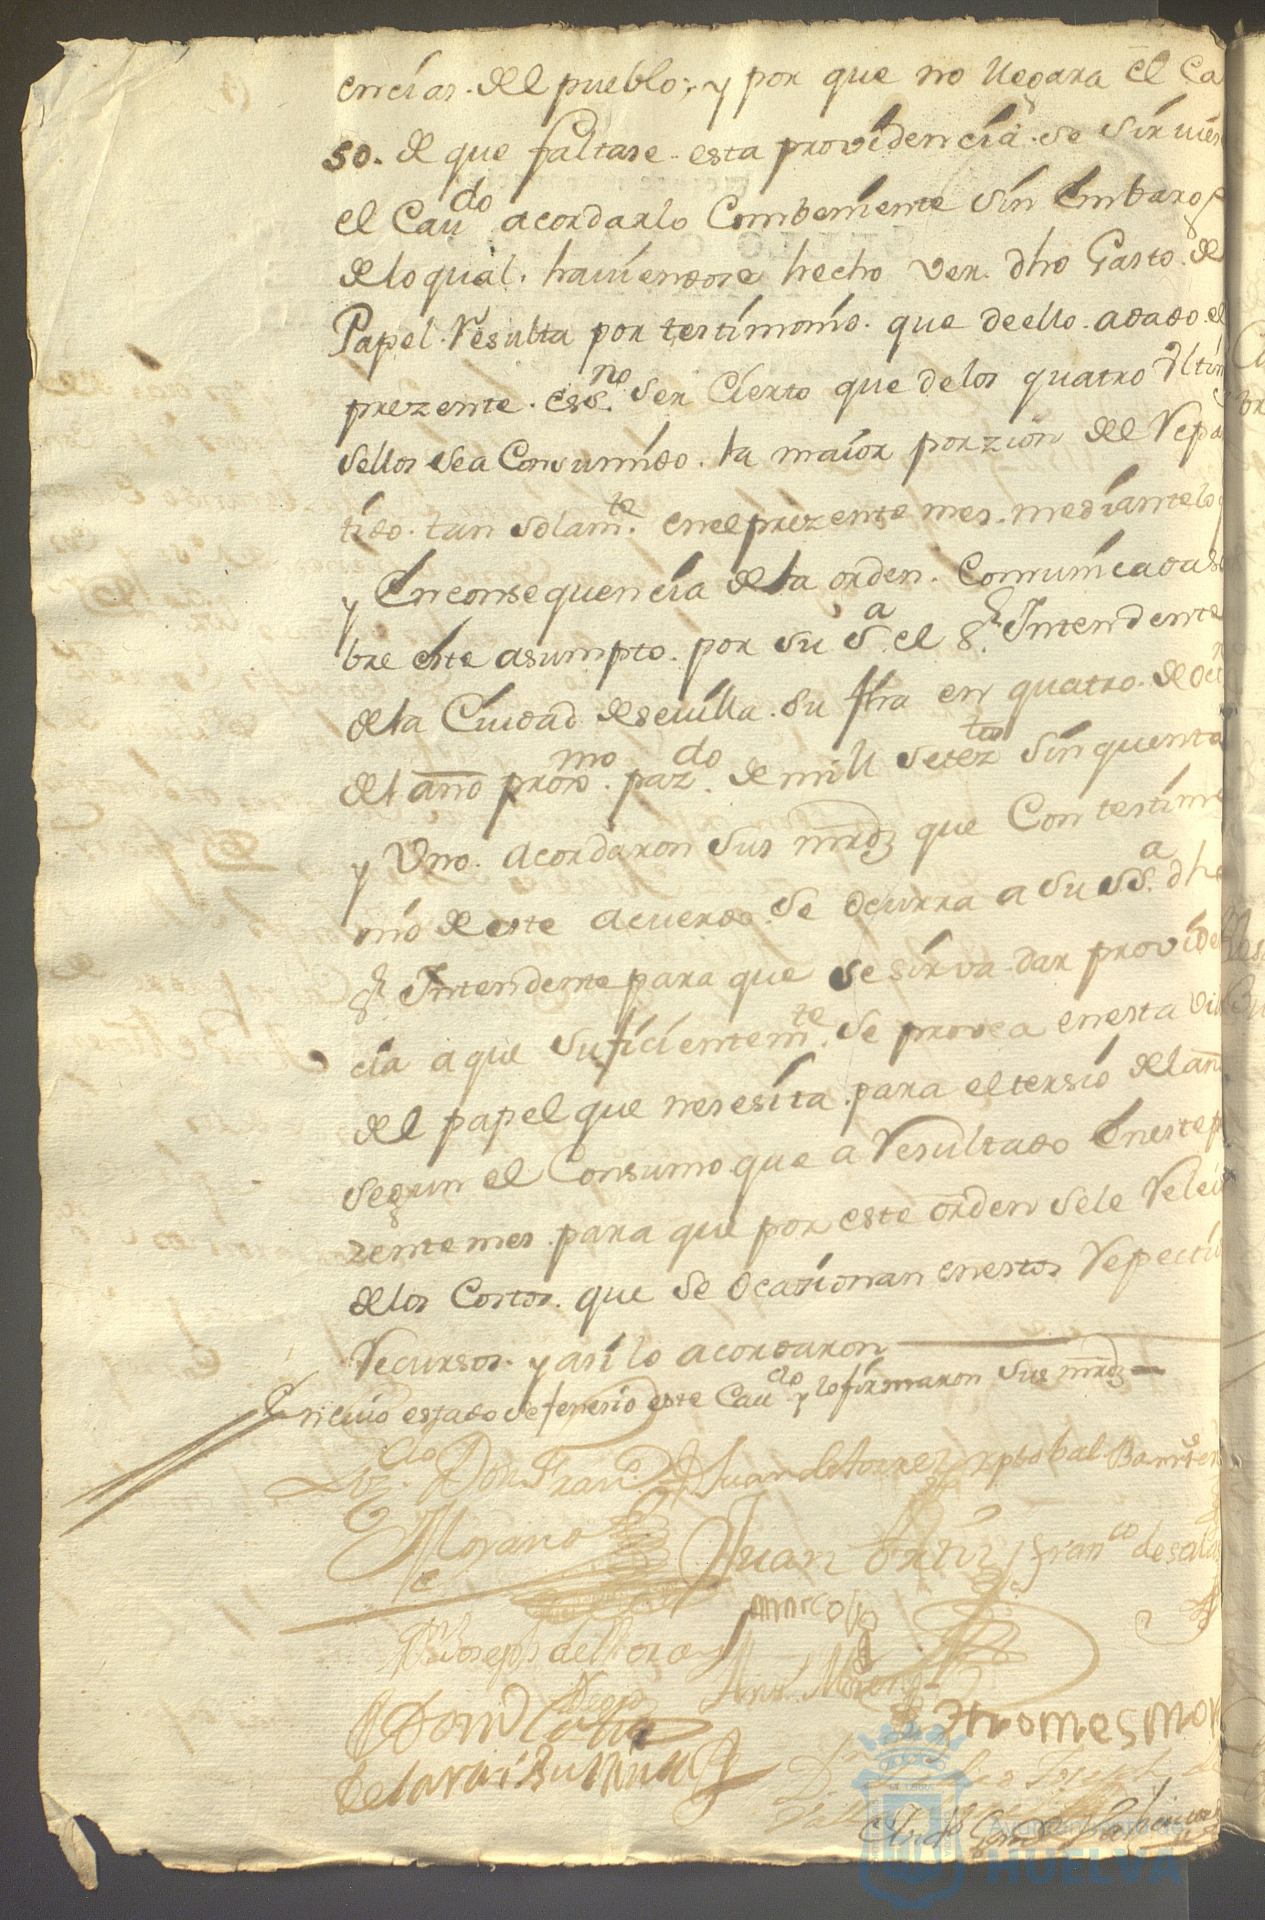 encias. del pueblo; y por que no llegara el Ca
so. de que faltase esta providencia. se sirvies
el Cavdo acordarlo Combeniente sin Embargo
de lo qual. haviendose hecho ver. dho Gasto. de
Papel. Resulta por testimonio. que de ello. a dado. el
prezente. essno. ser Cierto que de los quatro Ultim
sellos sea Consumido. la maior porzion del Repa
tido. tan solamte. en el prezente mes. mediante lo q
y En consequencia de la orden. Comunicada so
bre este asumpto. por su Sa. el Sr. Intendente
de la Ciudad de sevilla. su fha en quatro. de Oct
del año proxmo. pazdo. de mill seteztos sinquenta
y Uno. acordaron sus mrdz que Con testimo
nio de este acuerdo. se ocurra a su Sa. dho
Sr Intendente para que se sirva. dar provide
cia a que suficientemte. se provea en esta vil
del papel que nesesita. para el tersio del añ
segun el Consumo. que a Resultado En este p
zente mes. para que por este orden se le Relev
de los Costos. que se ocasionan en estos Repecti
Recursos. y asi lo acordaron
En cuio estado se fenesio este Cavdo y lo firmaron sus mrdz
Lizdo. Don Franco. Juan de torrez Xptobal Barrer
Morano Juan Ortiz Franco de salas
marcos
Joseph del
Anto. Moreno
Domo
thomes mor
de lara i
Joseph